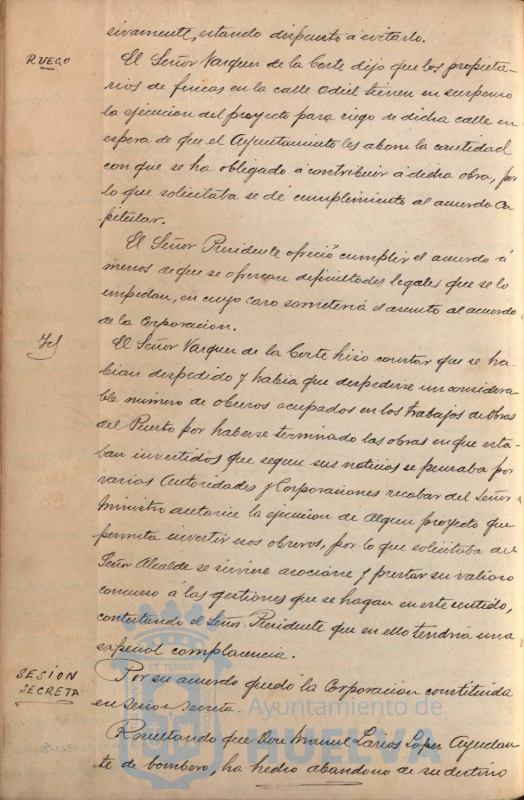 sivamente, estando dispuesto a evitarlo.
RUEGO
El Señor Vazquez de la Corte dijo que los propieta-
rios de fincas en la calle Odiel tienen en suspenso
la ejecucion del proyecto para riego de dicha calle en
espera de que el Ayuntamiento les abone la cantidad
con que se ha obligado a contribuir a dicha obra, por
lo que solicitaba se dé cumplimiento al acuerdo Ca-
pitular.
El Señor Presidente ofreció cumplir el acuerdo a
menos de que se ofrezcan dificultades legales que se lo
impidan, en cuyo caso someteria el asunto al acuerdo
de la Corporacion.
Id
El Señor Vazquez de la Corte hizo constar que se ha-
bian despedido y habia que despedirse un considera-
ble numero de obreros ocupados en los trabajos de Obras
del Puerto por haberse terminado las obras en que esta-
ban invertidos que segun sus noticias se pensaba por
varias Autoridades y Corporaciones recabar del Señor
Ministro autorice la ejecucion de algun proyecto que
permita invertir esos obreros, por lo que solicitaba del
Señor Alcalde se sirviese asociarse y prestar su valioso
concurso a las gestiones que se hagan en este sentido,
contestando el Señor Presidente que en ello tendria una
especial complacencia.
SESION
SECRETA
Por su acuerdo quedó la Corporacion constituida
en sesion secreta.
Resultando que Don Manuel Larios Lopez Ayudan-
te de bombero, ha hecho abandono de su destino
Ayuntamiento de
HUELVA